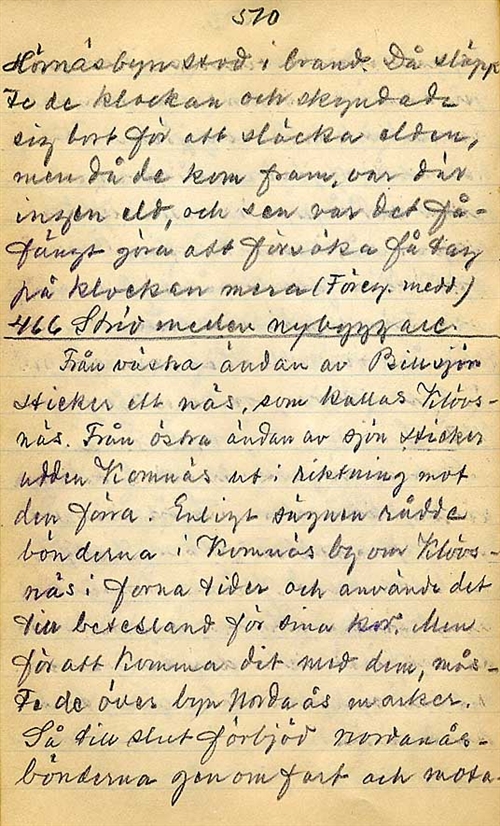 510
Hörnäsbyn stod i brand. Då släpp
te de klockan och skyndade
sig bort för att släcka elden,
men då de kom fram, var där
ingen eld, och sen var det få-
fängt göra att försöka få tag
på klockan mera (Föreg. medd.)
466 Strid mellan nybyggare.
Från västra ändan av Billsjön
sticker ett näs, som kallas Klövs-
näs. Från östra ändan av sjön sticker
udden Kornnäs ut i riktning mot
den förra. Enligt sägnen rådde
bönderna i Kornnäs by om Klövs-
näs i forna tider och använde det
till betesland för sina kor. Men
för att komma dit med dem, mås-
te de över byn Nordanås marker.
Så till slut förbjöd nordanås-
bönderna genomfart och mota-